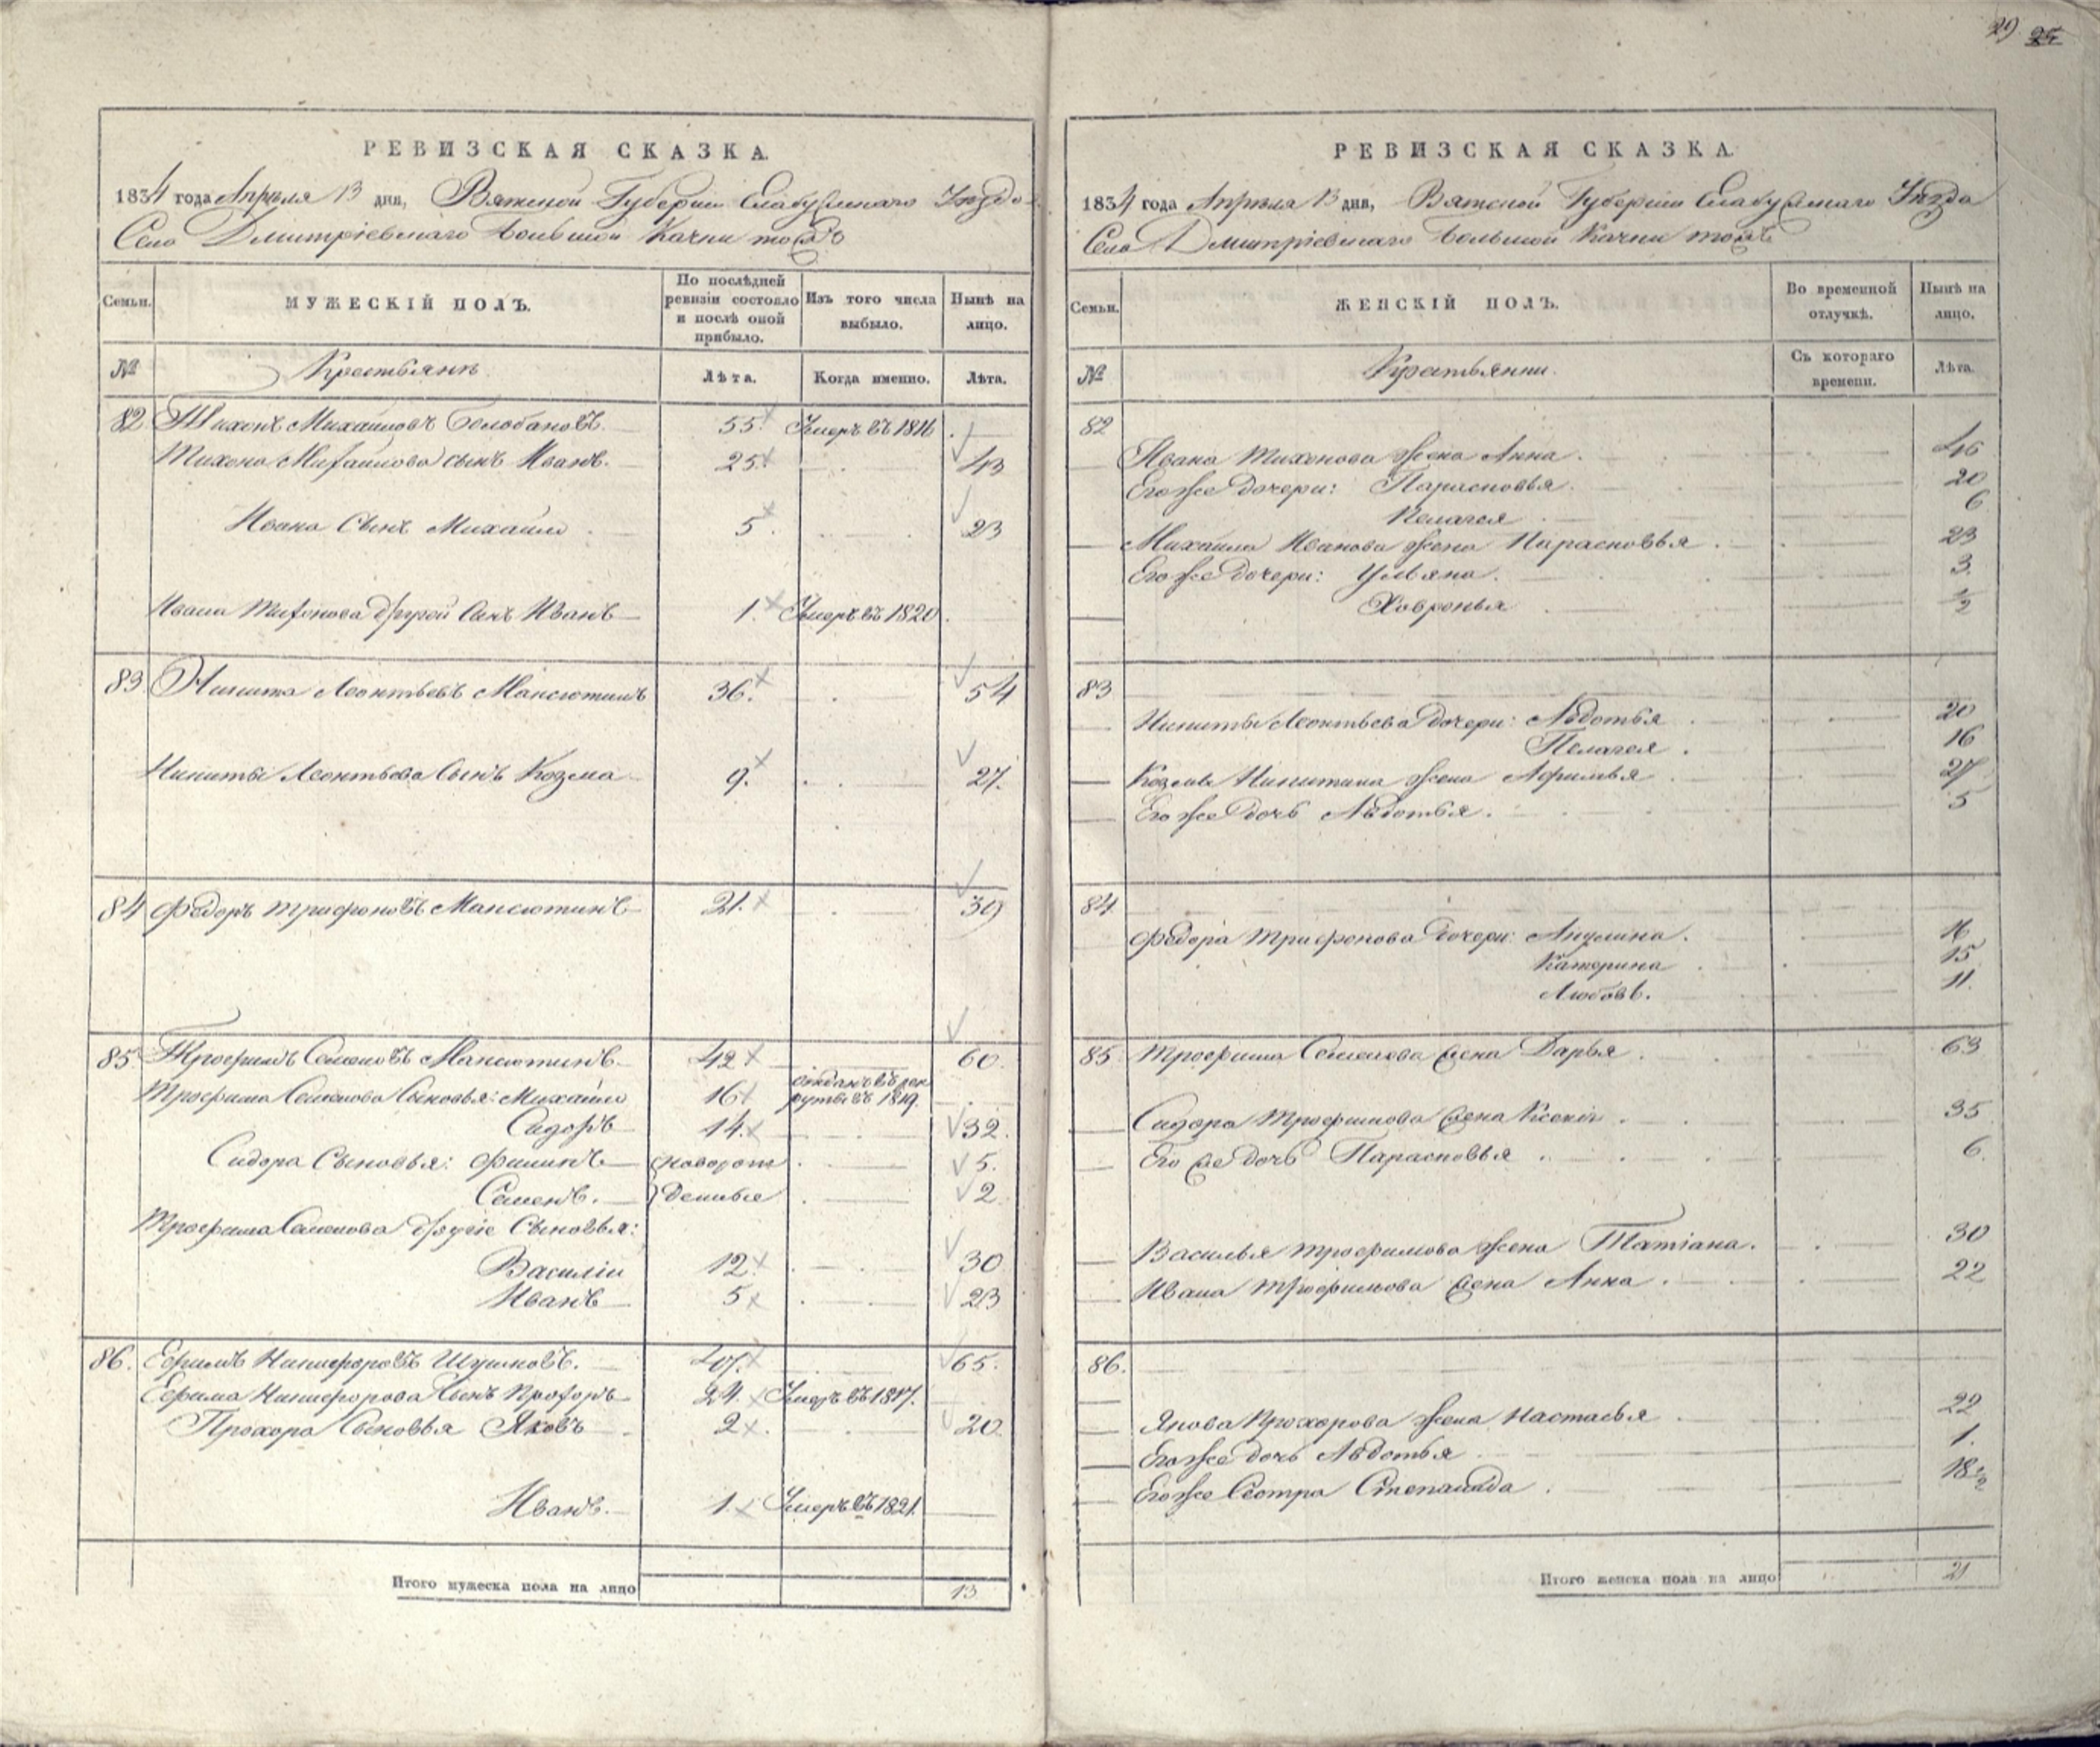 29 25
РЕВИЗСКАЯ СКАЗКА.
1834 года Апреля 13 дня, Вятской Губернии Елабужскаго Уезда
Села Дмитріевскаго Большой Качки тожъ
Семьи. МУЖЕСКІЙ ПОЛЪ. По послѣдней ревизіи состояло и послѣ оной прибыло. Изъ того числа выбыло. Нынѣ на лицо.
№ Крестьянъ Лѣта. Когда именно. Лѣта.
82 Тихонъ Михайловъ Белобановъ. 55. Умеръ въ 1816
Тихона Михайлова сынъ Иванъ. 25. 43
Ивана Сынъ Михайло 5. 23
Ивана Тихонова другой Сынъ Иванъ 1. Умеръ въ 1820.
83 Никита Леонтьевъ Мансютинъ 36. 54
Никиты Леонтьева Сынъ Козма 9. 27.
84 Федоръ Трифоновъ Мансютинъ 21. 39
85. Трофимъ Семеновъ Мансютинъ 42 60.
Трофима Семенова Сыновья: Михайло 16 отданъ въ рек
руты въ 1819.
Сидоръ 14. 32.
Сидора Сыновья: Филипъ новорож 5.
Семенъ. денные 2
Трофима Семенова другіе Сыновья:
Василіи 12. 30
Иванъ 5 23
86. Ефимъ Никифоровъ Шушковъ. 47. 65.
Ефима Никифорова Сынъ Прохоръ 24. Умеръ въ 1817.
Прохора Сыновья Яковъ 2. 20.
Иванъ. 1. Умеръ въ 1821.
Итого мужеска пола на лицо 13
РЕВИЗСКАЯ СКАЗКА.
1834 года Апреля 13 дня, Вятской Губерніи Елабужскаго Уезда
Села Дмитріевскаго Большой Качки тожъ
Семьи. ЖЕНСКІЙ ПОЛЪ. Во временной отлучкѣ. Нынѣ на лицо.
№ Крестьянки. Съ котораго времени. Лѣта.
82
Ивана Тихонова жена Анна. 46
Его же дочери: Парасковья. 20
Пелагея 6
Михайла Иванова жена Парасковья. 23
Его же дочери: Ульяна. 3.
Ховронья ½
83
Никиты Леонтьева дочери: Авдотья 20
Пелагея. 16
Козмы Никитина жена Афимья 27
Его же дочь Авдотья. 5
84.
Федора Трифонова дочери: Акулина. 16
Катерина 15
Любовь. 11.
85. Трофима Семенова жена Дарья. 63
Сидора Трофимова жена Ксенія. 35
Его же дочь Парасковья. 6.
Василья Трофимова жена Татіана. 30
Ивана Трофимова жена Анна. 22
86.
Якова Прохорова жена Настасья 22
Его же дочь Авдотья 1.
Его же Сестра Степанида. 18½
Итого женска пола на лицо 21